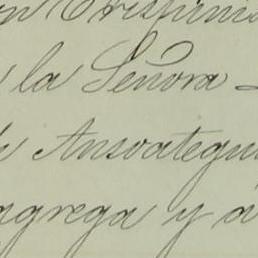 Crispini
la Señora
Ansoategui
agrega y á